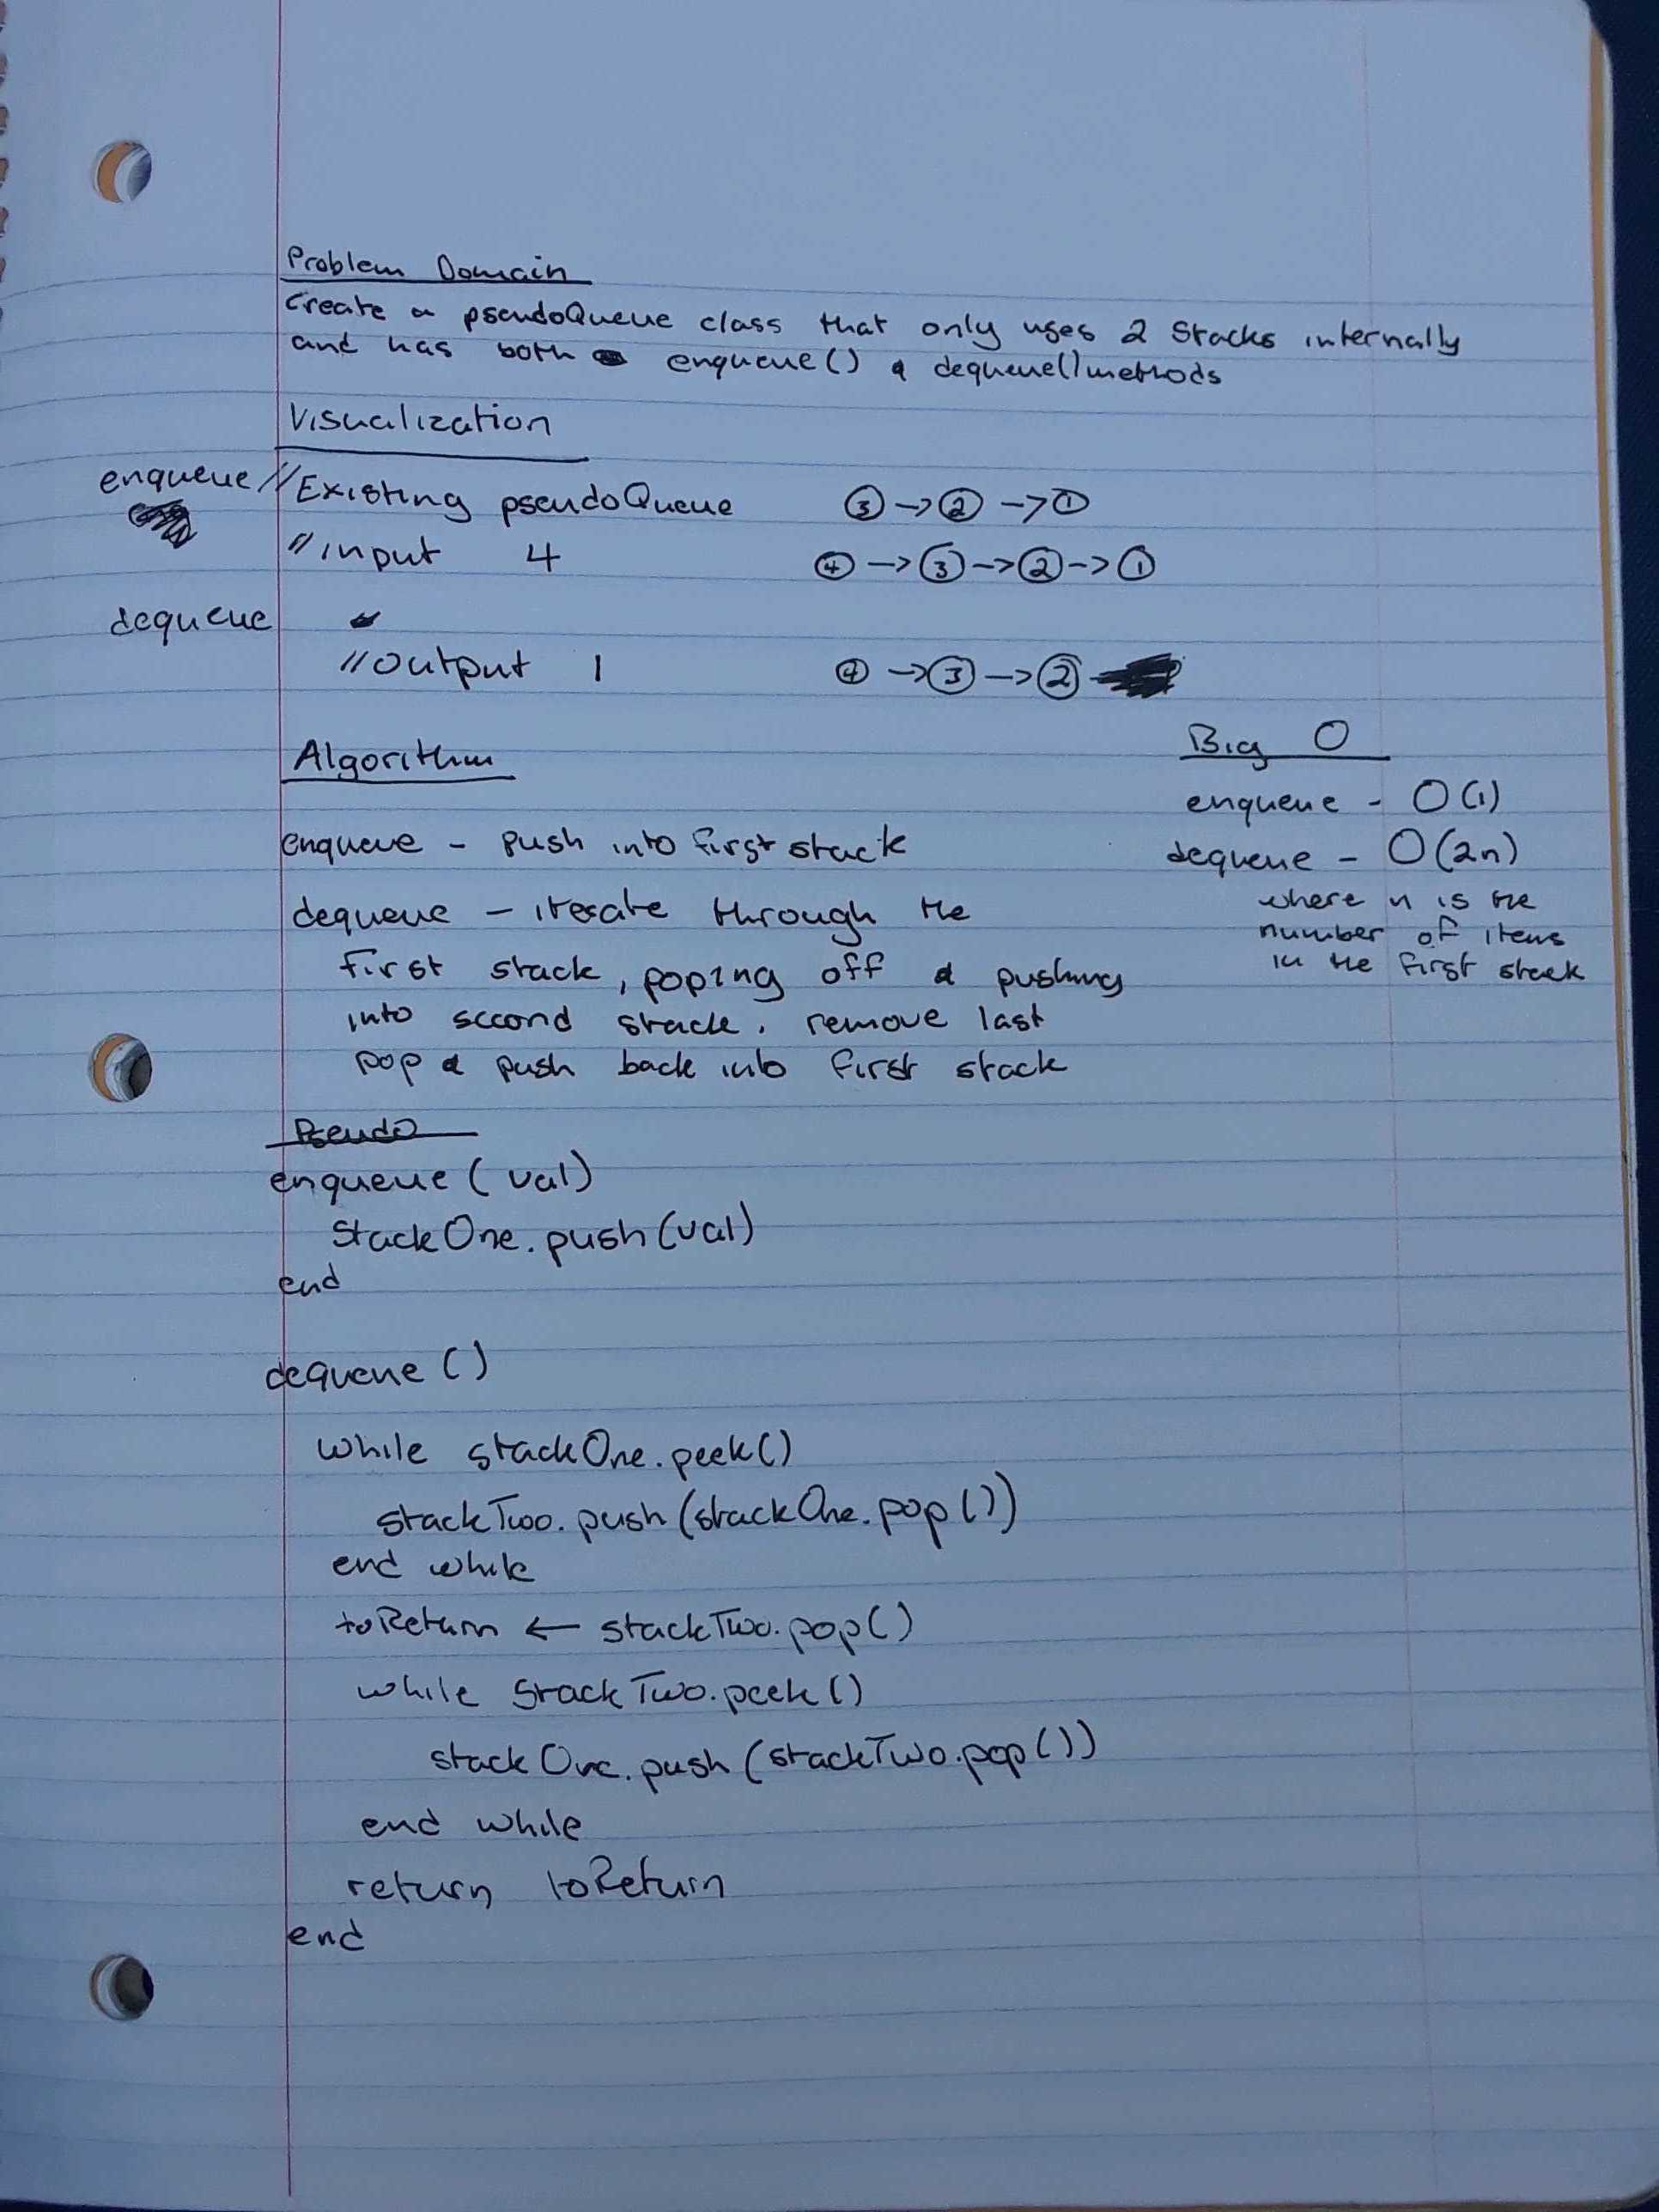 Problem Domain
Create a pseudoQueue class that only uses 2 Stacks internally
and has both enqueue() & dequeue() methods
Visualization
enqueue // Existing pseudoQueue ③ -> ② -> ①
// input 4 ④ -> ③ -> ② -> ①
dequeue
// output 1 ④ -> ③ -> ②
Algorithm
enqueue - push into first stack
dequeue - iterate through the
first stack, poping off & pushing
into second stack. remove last
pop & push back into first stack
Big O
enqueue - O(1)
dequeue - O(2n)
where n is the
number of items
in the first stack
Pseudo
enqueue (val)
StackOne.push(val)
end
dequeue ()
while stackOne.peek()
stackTwo.push(stackOne.pop())
end while
toReturn ← stackTwo.pop()
while stackTwo.peek()
stackOne.push(stackTwo.pop())
end while
return toReturn
end